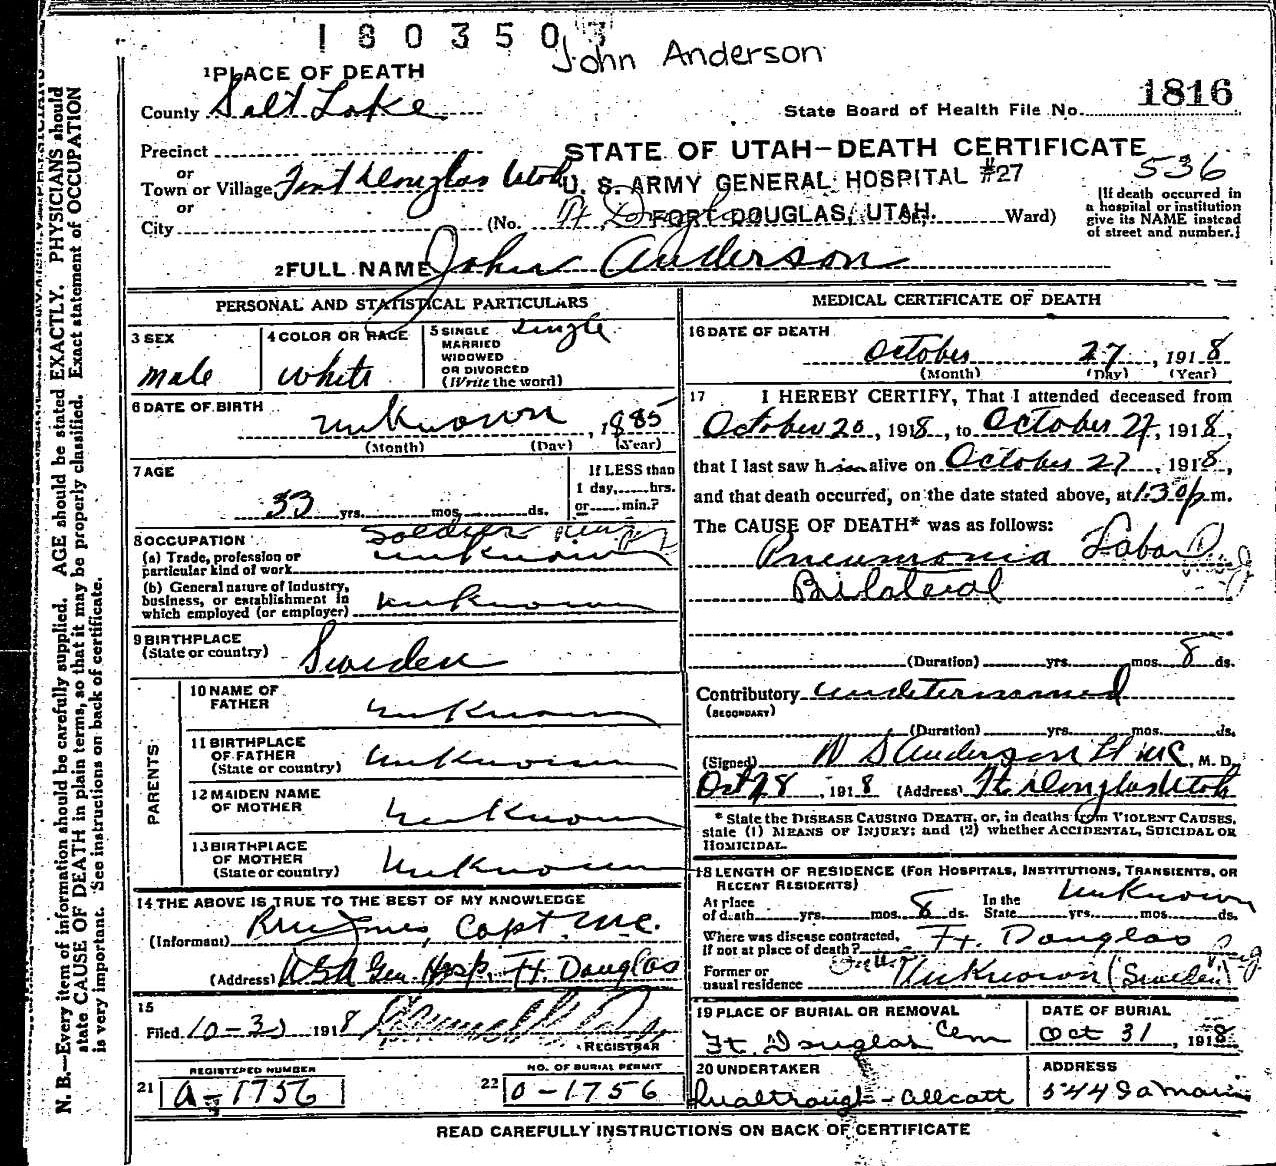 1803503
John Anderson
1 PLACE OF DEATH
County Salt Lake
State Board of Health File No. 1816
Precinct
or
Town or Village Fort Douglas Utah
or
City
STATE OF UTAH-DEATH CERTIFICATE
U. S. ARMY GENERAL HOSPITAL #27
536
(No. Ft. Douglas
FORT DOUGLAS, UTAH.
Ward)
[If death occurred in
a hospital or institution
give its NAME instead
of street and number.]
2 FULL NAME John Anderson
PERSONAL AND STATISTICAL PARTICULARS
3 SEX
Male
4 COLOR OR RACE
White
5 SINGLE
MARRIED
WIDOWED
OR DIVORCED
(Write the word)
Single
6 DATE OF BIRTH
unknown, 1885
(Month) (Day) (Year)
7 AGE
33 yrs. mos. ds.
If LESS than
1 day, hrs.
or min.?
8 OCCUPATION
Soldier
(a) Trade, profession or
particular kind of work unknown
(b) General nature of Industry,
business, or establishment in
which employed (or employer) unknown
9 BIRTHPLACE
(State or country) Sweden
PARENTS
10 NAME OF
FATHER unknown
11 BIRTHPLACE
OF FATHER
(State or country) unknown
12 MAIDEN NAME
OF MOTHER unknown
13 BIRTHPLACE
OF MOTHER
(State or country) unknown
14 THE ABOVE IS TRUE TO THE BEST OF MY KNOWLEDGE
(Informant) Capt. M.C.
(Address) USA Gen. Hosp. Ft. Douglas
15
Filed 10-30 1918
REGISTRAR
REGISTERED NUMBER
21 A-1756
NO. OF BURIAL PERMIT
22 0-1756
MEDICAL CERTIFICATE OF DEATH
16 DATE OF DEATH
October 27, 1918
(Month) (Day) (Year)
17 I HEREBY CERTIFY, That I attended deceased from
October 20, 1918, to October 27, 1918,
that I last saw him alive on October 27, 1918,
and that death occurred, on the date stated above, at 1:30 p.m.
The CAUSE OF DEATH* was as follows:
Pneumonia Lobar
Bilateral
(Duration) yrs. mos. 8 ds.
Contributory undetermined
(SECONDARY)
(Duration) yrs. mos. ds.
(Signed) W S Anderson Lt MC, M. D.
Oct 28, 1918 (Address) Ft. Douglas Utah
* State the DISEASE CAUSING DEATH, or, in deaths from VIOLENT CAUSES,
state (1) MEANS OF INJURY; and (2) whether ACCIDENTAL, SUICIDAL OR
HOMICIDAL.
18 LENGTH OF RESIDENCE (FOR HOSPITALS, INSTITUTIONS, TRANSIENTS, OR
RECENT RESIDENTS)
At place
of death yrs. mos. 8 ds.
In the
State yrs. mos. ds.
Unknown
Where was disease contracted,
if not at place of death? Ft. Douglas
Former or
usual residence Unknown (Sweden)
19 PLACE OF BURIAL OR REMOVAL
Ft. Douglas Cem
DATE OF BURIAL
Oct 31, 1918
20 UNDERTAKER
Qualtrough-Allcott
ADDRESS
544 So Main
READ CAREFULLY INSTRUCTIONS ON BACK OF CERTIFICATE
N. B.—Every item of information should be carefully supplied. AGE should be stated EXACTLY. PHYSICIANS should
state CAUSE OF DEATH in plain terms, so that it may be properly classified. Exact statement of OCCUPATION
is very important. See instructions on back of certificate.